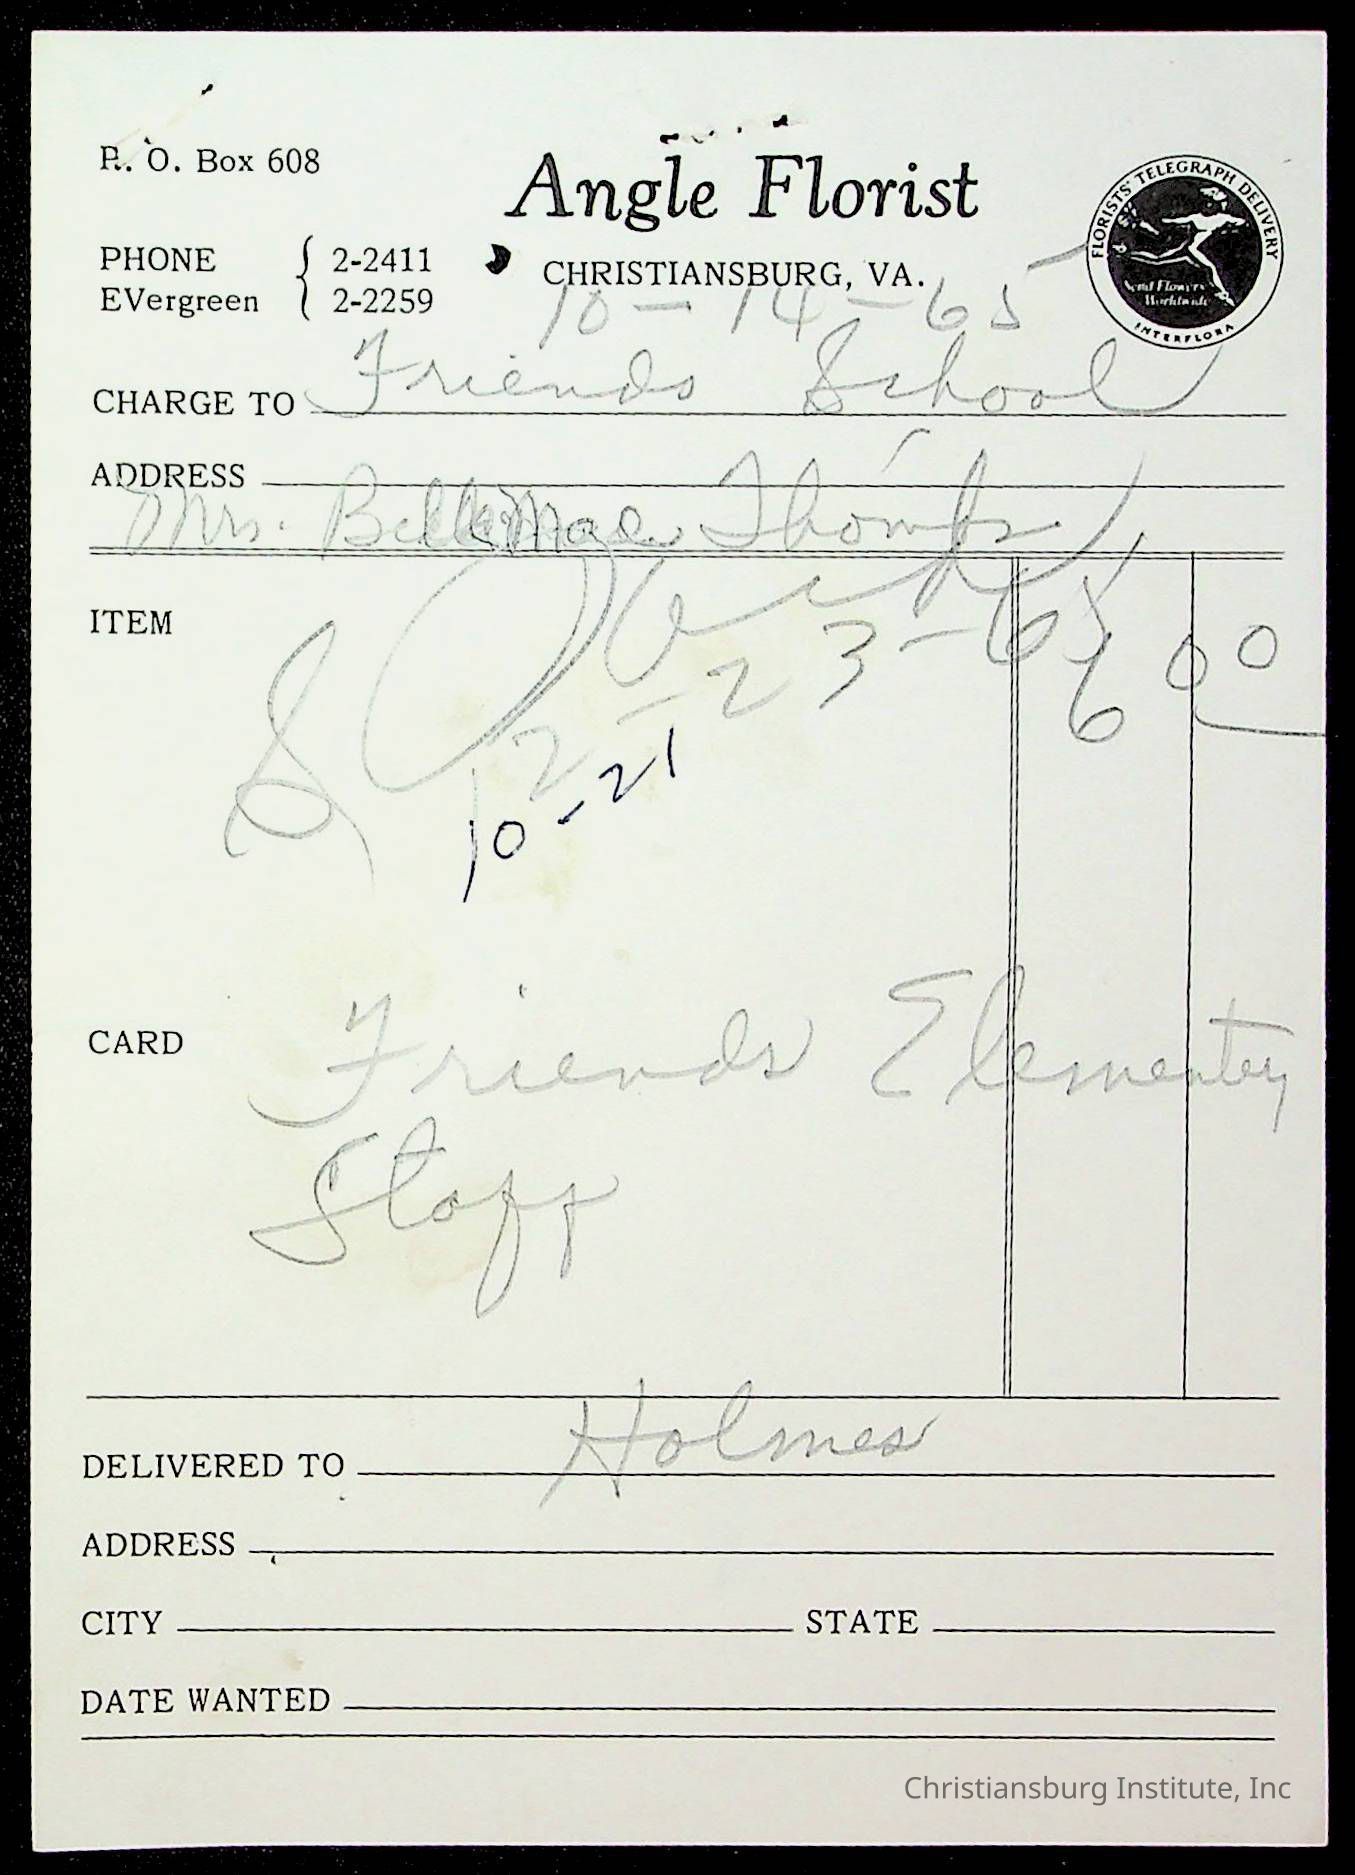 P. O. Box 608
Angle Florist
FLORISTS' TELEGRAPH DELIVERY
Send Flowers
Worldwide
INTERFLORA
PHONE
EVergreen
2-2411
2-2259
CHRISTIANSBURG, VA.
10-14-65
CHARGE TO Friends School
ADDRESS
Mrs. Mae
ITEM
Paid
12-23-65
6 00
10-21
CARD Friends Elementey
Staff
DELIVERED TO Holmes
ADDRESS
CITY STATE
DATE WANTED
Christiansburg Institute, Inc